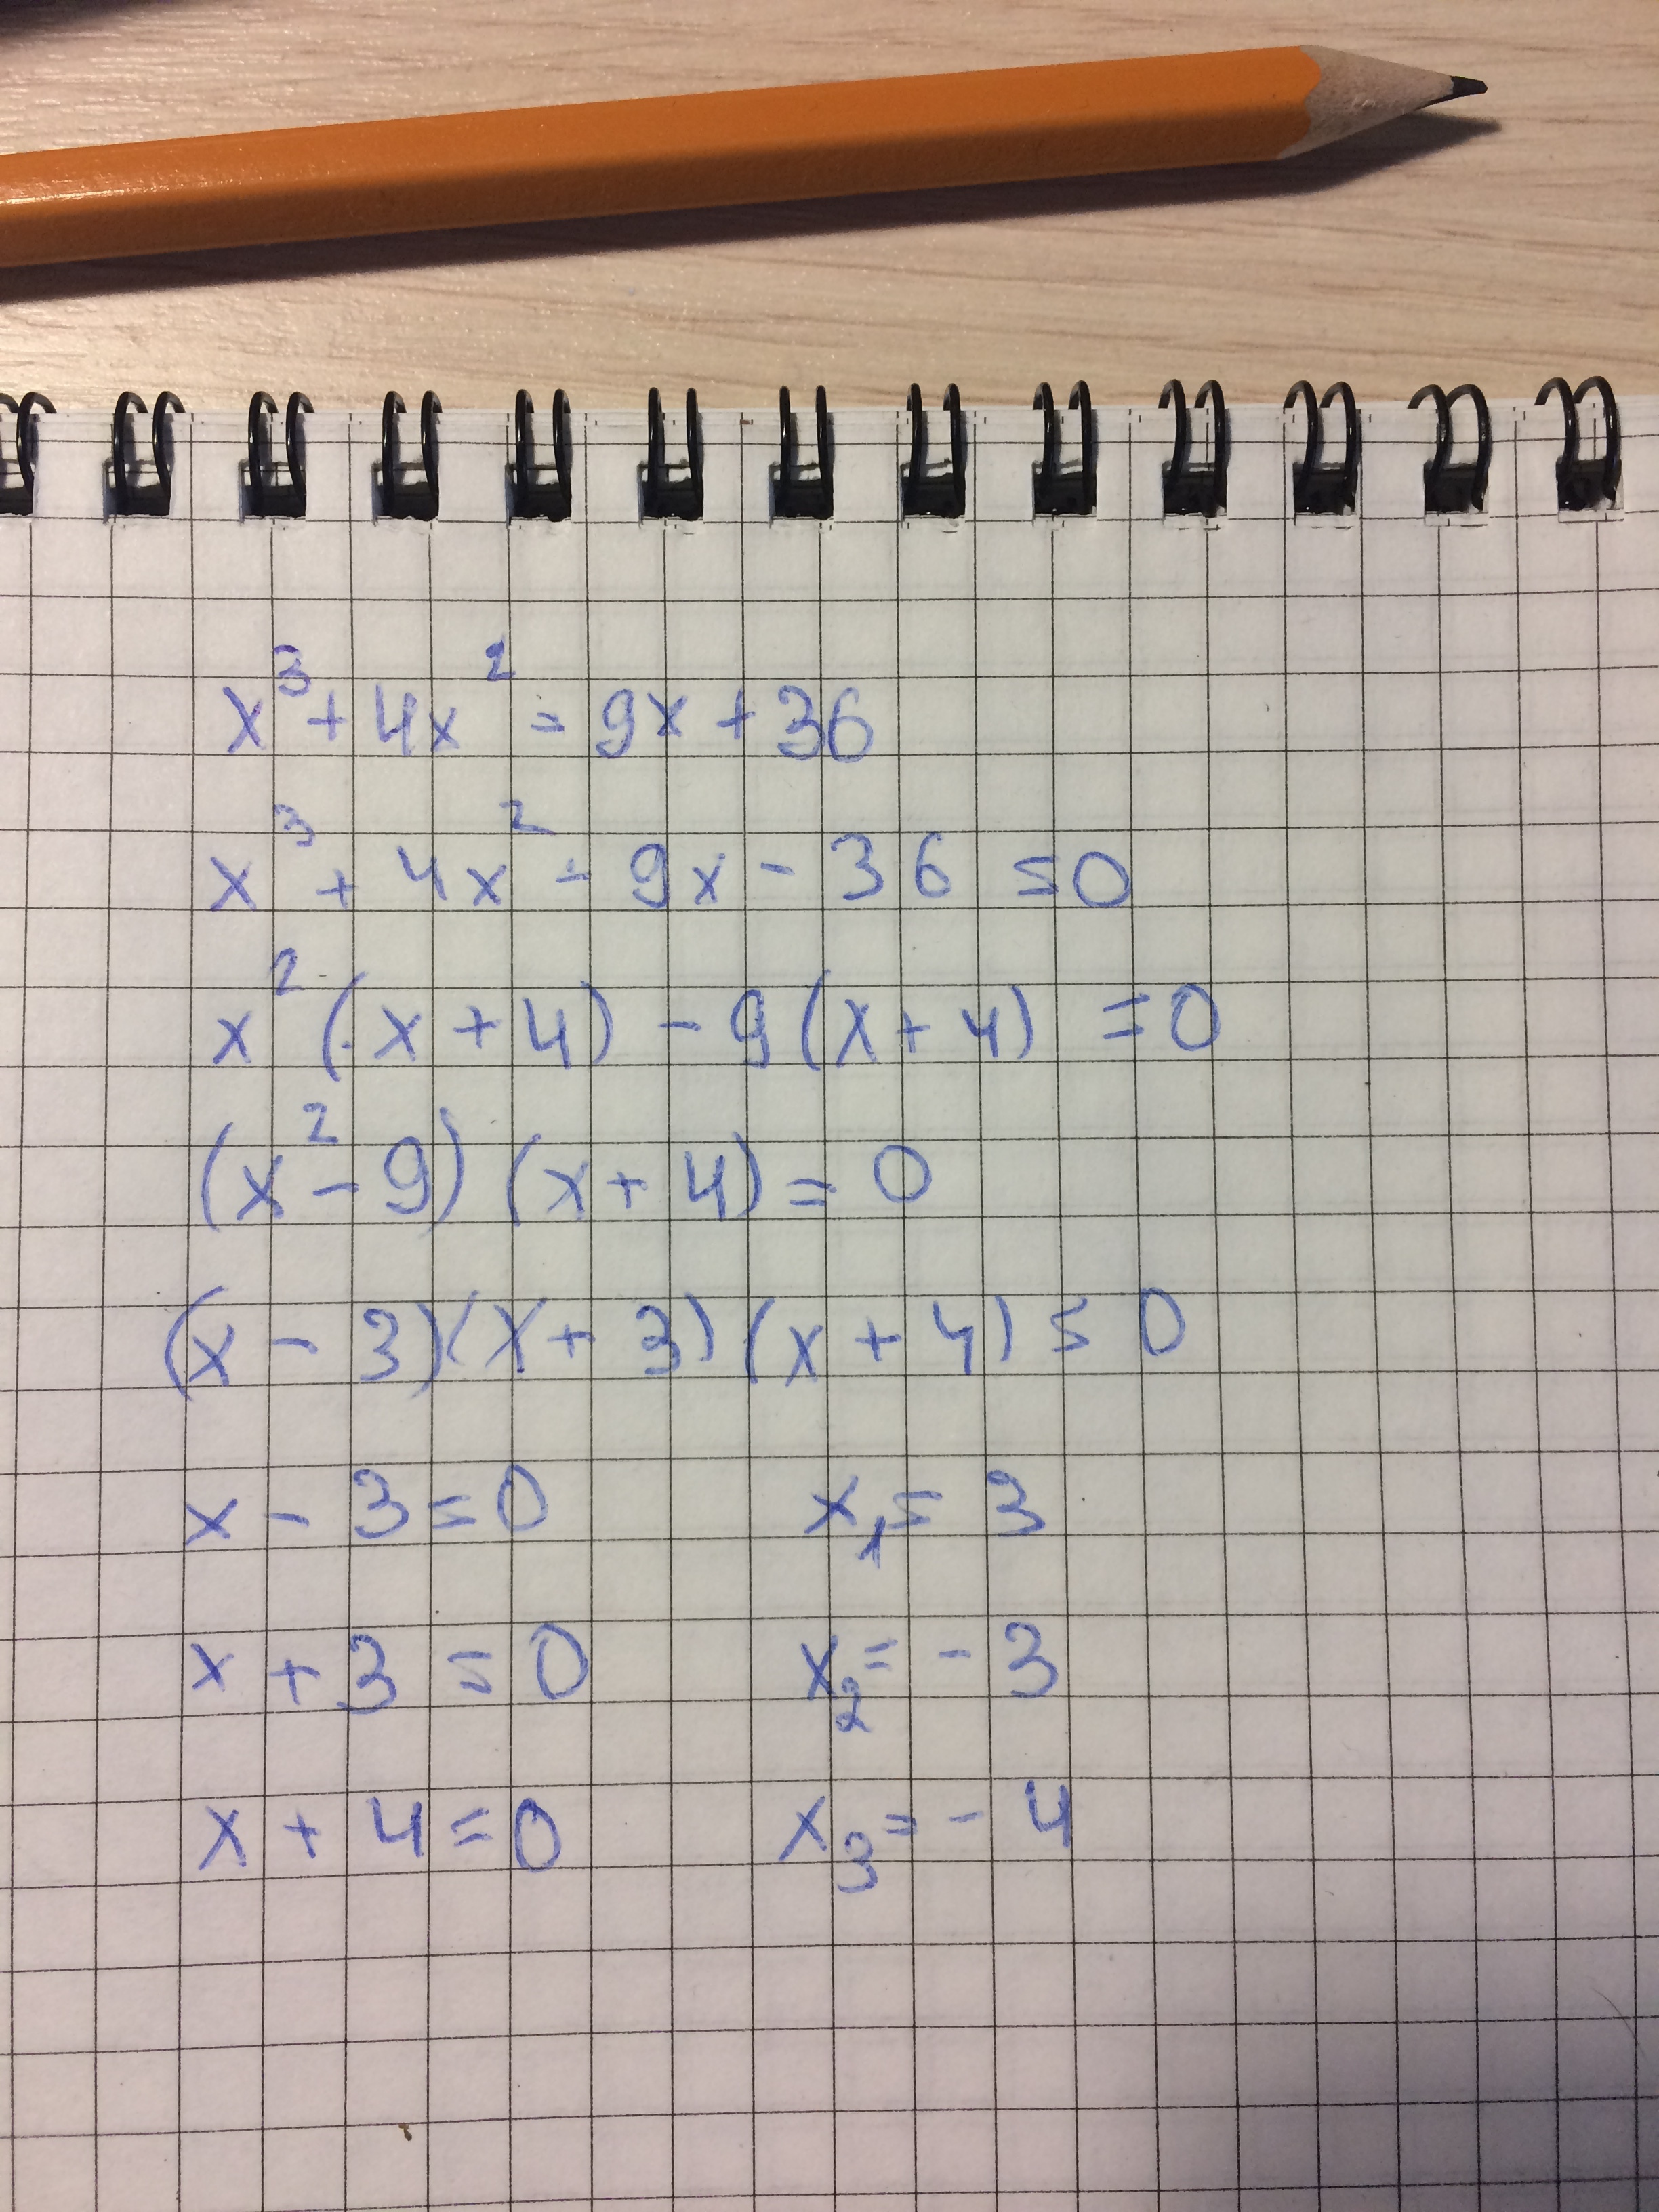 x³ + 4x² = 9x + 36
x³ + 4x² - 9x - 36 = 0
x² (x + 4) - 9 (x + 4) = 0
(x² - 9) (x + 4) = 0
(x - 3)(x + 3) (x + 4) = 0
x - 3 = 0 x₁ = 3
x + 3 = 0 x₂ = - 3
x + 4 = 0 x₃ = - 4